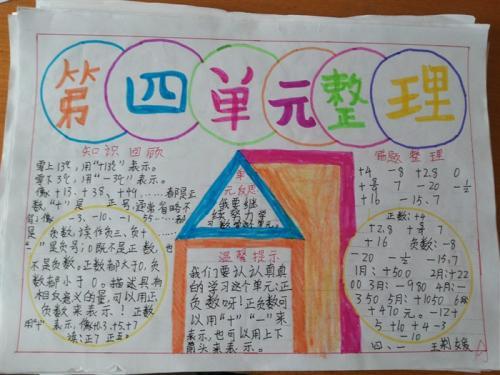 第四单元整理
知识回顾
零上13℃,用"+13℃"表示。
零下3℃,用"-3℃"表示。
像+15、+38、+49……都是正
数"+"是正号,通常省略不
写,像-3、-10、-1、55……都
是负数,读作负三、负十
"-"是负号;0既不是正数,也
不是负数。正数都大于0,负
数都小于0。描述具有
相反意义的量,可以用正
负数来表示!正数
用"+"表示,像+3、+5、+7
读:正7
单
元反思
我要继
续努力学
温馨提示
我们要认认真真
的学习这个单元:正
负数呀!正负数可
以用"+""-"来
表示,也可以用上下
箭头来表示。
整理
+4 -8 +2.8 0
7 -20
+16 -15、7
正数:+4
+2.8 + 7
+16 负数:-8
-20 -15、7
1月:+500 2月:+22
00 3月:-980 4月:-
350 5月:+1050 6月
+470元。-12+
5+10+4-3
-10
四、一